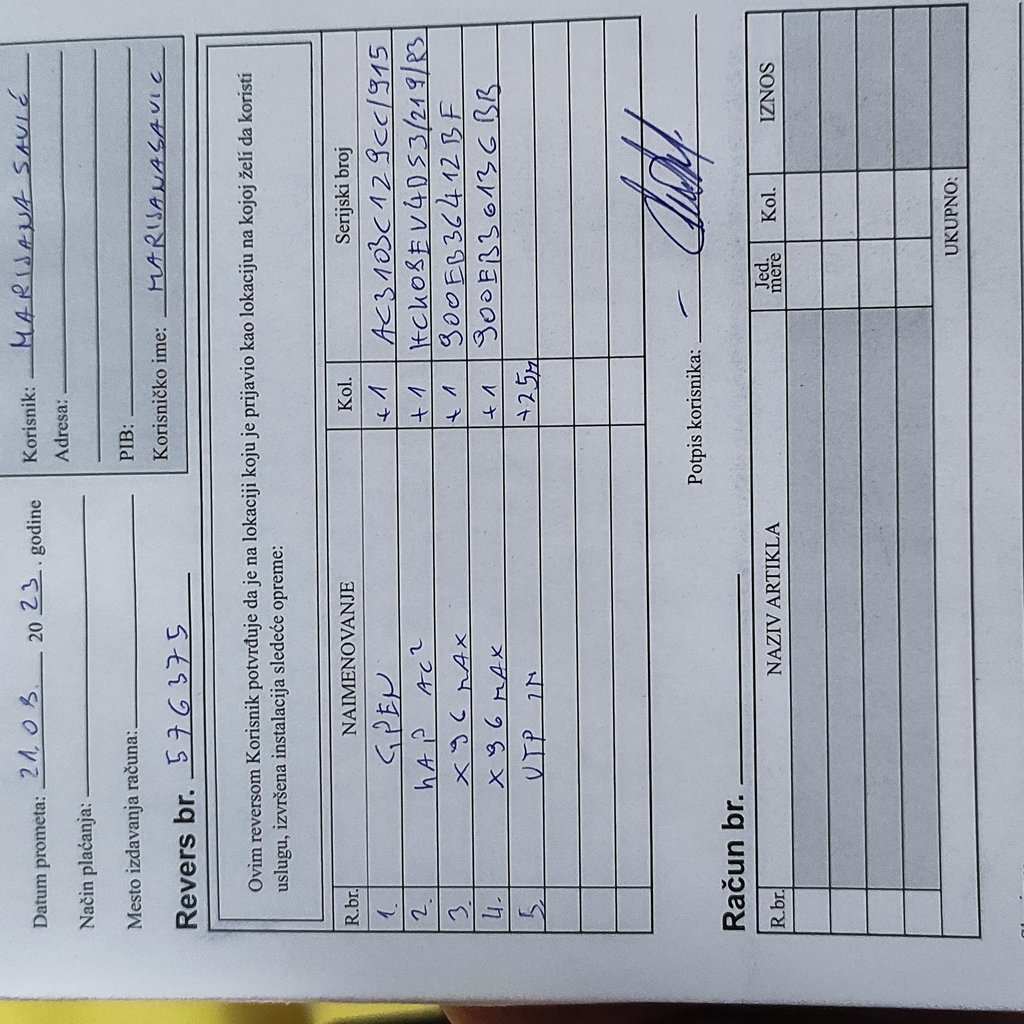 Datum prometa: 21.09. 2023. godine
Način plaćanja:
Mesto izdavanja računa:
Korisnik: MARIJANA SAVIĆ
Adresa:
PIB:
Korisničko ime: MARIJANASAVIC
Revers br. 576375
Ovim reversom Korisnik potvrđuje da je na lokaciji koju je prijavio kao lokaciju na kojoj želi da koristi
uslugu, izvršena instalacija sledeće opreme:
R.br. NAIMENOVANJE Kol. Serijski broj
1. GPEN +1 AC3103C129CC/915
2. hAP AC2 +1 HCK08EV4DS3/219/R3
3. X96 MAX +1 900EB36412BF
4. X96 MAX +1 900EB3613GBB
5. UTP IN +25m
Potpis korisnika:
Račun br.
R.br. NAZIV ARTIKLA Jed. mere Kol. IZNOS
UKUPNO: